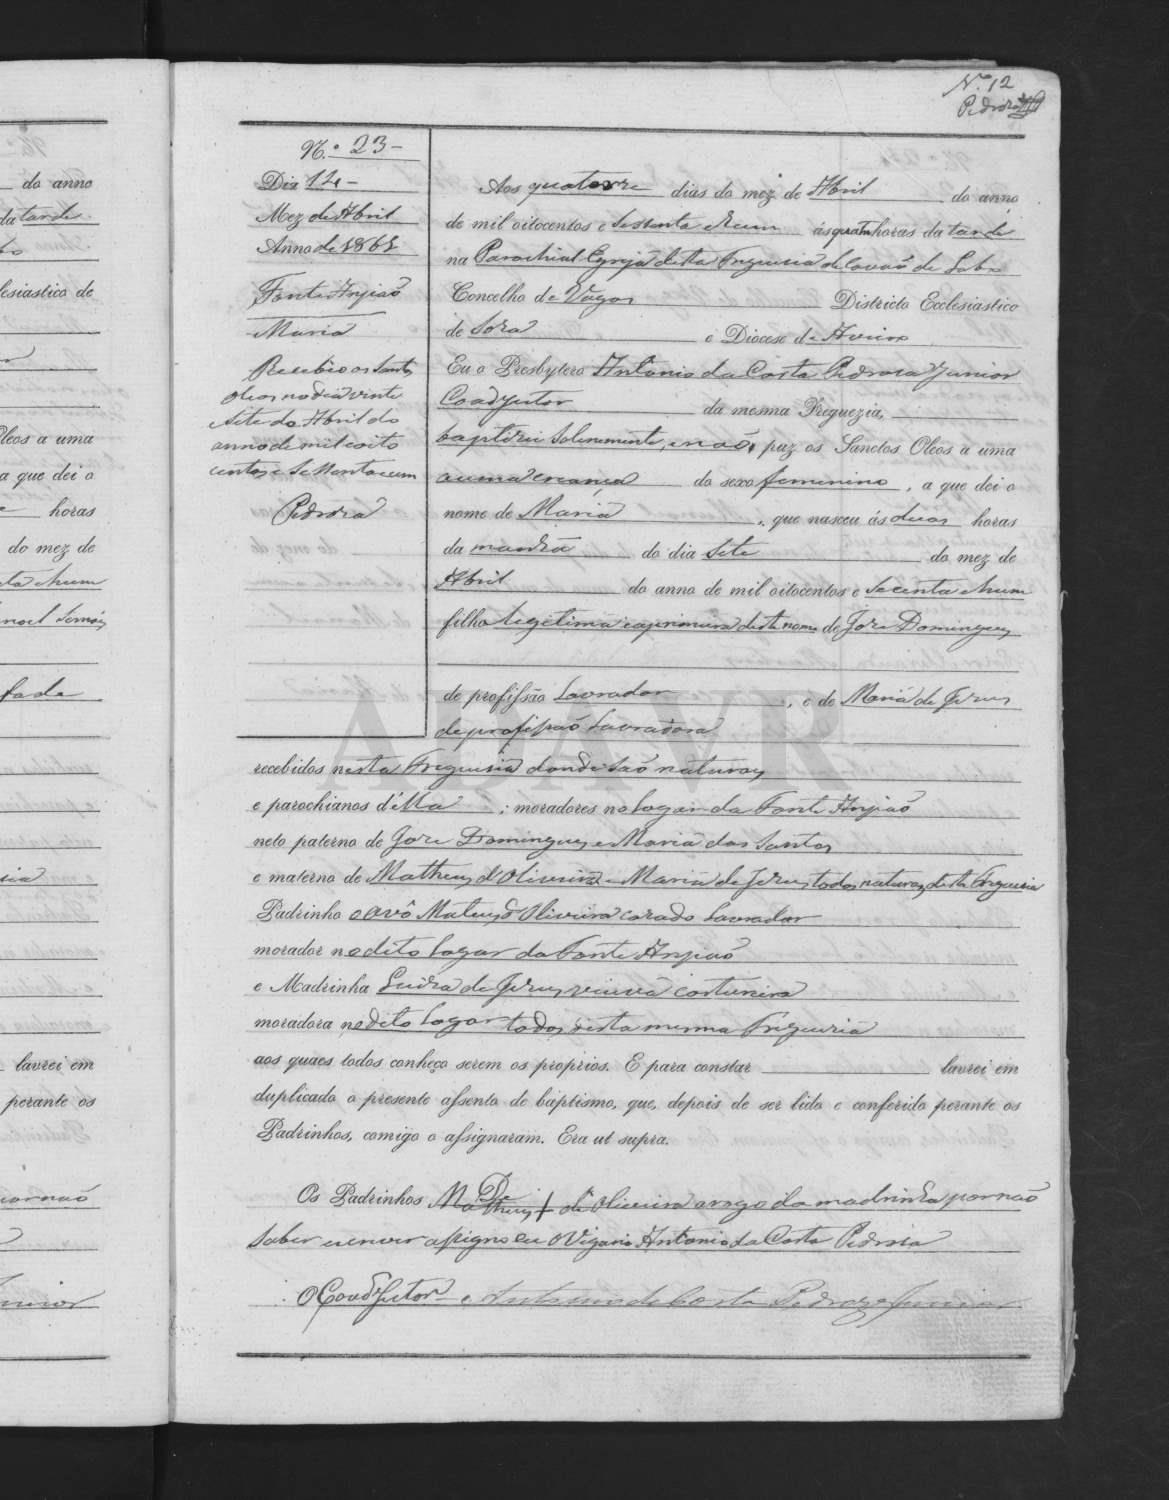 N.º 12
Pedroza
N.º 23
Dia 14
Mez de Abril
Anno de 1861
Fonte Anjiaõ
Maria
Recebeo os Santos
oleos no dia vinte
sete do Abril do
anno de mil e oito
centos e sessenta e um
Pedroza
Aos quatorze dias do mez de Abril do anno
de mil oitocentos e sessenta e hum ás quatro horas da tarde
na Parochial Egreja desta Freguesia de Covaõ de Lobo
Concelho de Vagos Districto Ecclesiastico
de Soza e Diocese de Aveiro
Eu o Presbytero Antonio da Costa Pedroza Junior
Coadjutor da mesma Freguezia,
baptizei solenemente, e naõ puz os Sanctos Oleos a uma
a uma creança do sexo femenino, a que dei o
nome de Maria, que nasceu ás duas horas
da manhã do dia sete do mez de
Abril do anno de mil oitocentos e secenta e hum
filha legitima e a primeira deste nome de Joze Domingues
de profissão Lavrador, e de Maria de Jezus
de profissaõ Lavradora
recebidos nesta Freguesia donde saõ naturaes
e parochianos d'élla: moradores no Logar da Fonte Anjiaõ
neto paterno de Joze Domingues e Maria dos Santos
e materno de Matheus d'Oliveira e Maria de Jezus todos naturaes desta Freguesia
Padrinho o avô Mateus d'Oliveira cazado Lavrador
morador no dito Logar da Fonte Anjiaõ
e Madrinha Luiza de Jezus viuva costureira
moradora no dito Logar todos desta mesma Freguezia
aos quaes todos conheço serem os proprios. E para constar lavrei em
duplicado o presente assento de baptismo, que, depois de ser lido e conferido perante os
Padrinhos, comigo o assignaram. Era ut supra.
Os Padrinhos De Matheus + de Oliveira a rogo da madrinha por naõ
saber escrever assigno eu o Vigario Antonio da Costa Pedroza
O Coadjutor Antonio da Costa Pedroza Junior
do anno
da tarde
lesiastico de
Oleos a uma
a que dei o
horas
do mez de
lavrei em
perante os
ADAVR